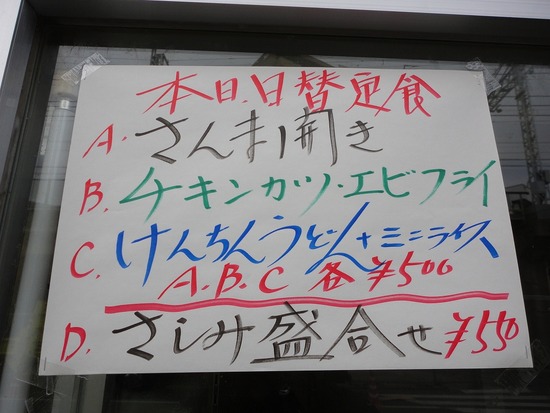 本日.日替定食
A. さんま開き
B. チキンカツ・エビフライ
C. けんちんうどん+ミニライス
A.B.C 各¥500
D. さしみ盛合せ ¥550